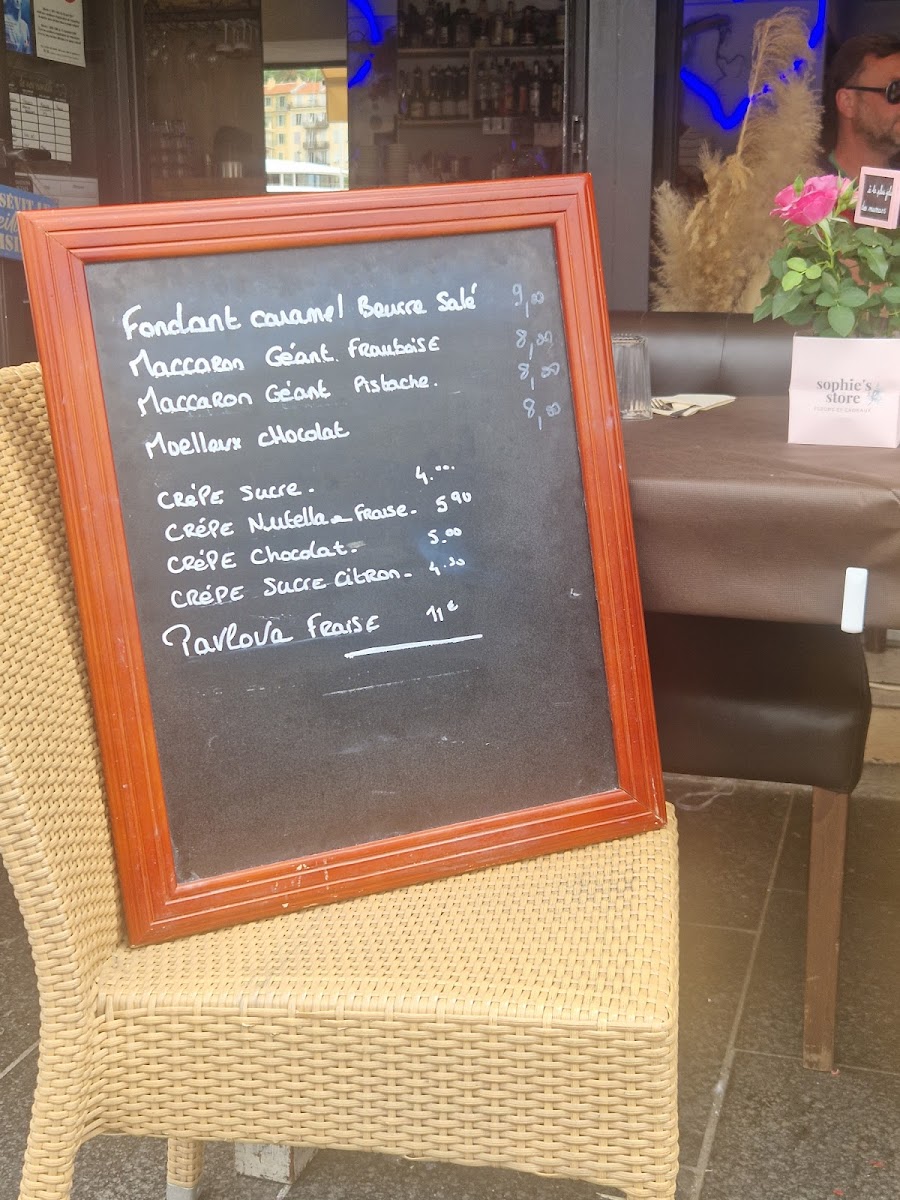 Fondant caramel Beurre Salé 9,00
Maccaron Géant. Framboise 8,00
Maccaron Géant Pistache. 8,00
Moelleux chocolat 8,00
CRÉPE Sucre. 4.00.
CRÉPE Nutella - Fraise. 5 90
CRÉPE Chocolat. 5.00
CRÉPE Sucre Citron. 4.50
Pavlova Fraise 11€
sophie's
store
FLEURS ET CADEAUX